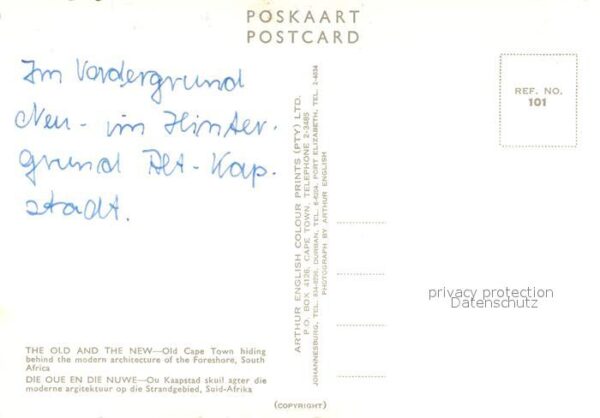 POSKAART
POSTCARD
Im Vordergrund
Neu - im Hinter.
grund Alt - Kap.
stadt.
THE OLD AND THE NEW—Old Cape Town hiding
behind the modern architecture of the Foreshore, South
Africa
DIE OUE EN DIE NUWE—Ou Kaapstad skuil agter die
moderne argitektuur op die Strandgebied, Suid-Afrika
(COPYRIGHT)
ARTHUR ENGLISH COLOUR PRINTS (PTY) LTD.
P.O. BOX 4126, CAPE TOWN, TELEPHONE 2-3485
JOHANNESBURG, TEL. DURBAN, TEL. PORT ELIZABETH, TEL. 2-4034
PHOTOGRAPH BY ARTHUR ENGLISH
REF. NO.
101
privacy protection
Datenschutz